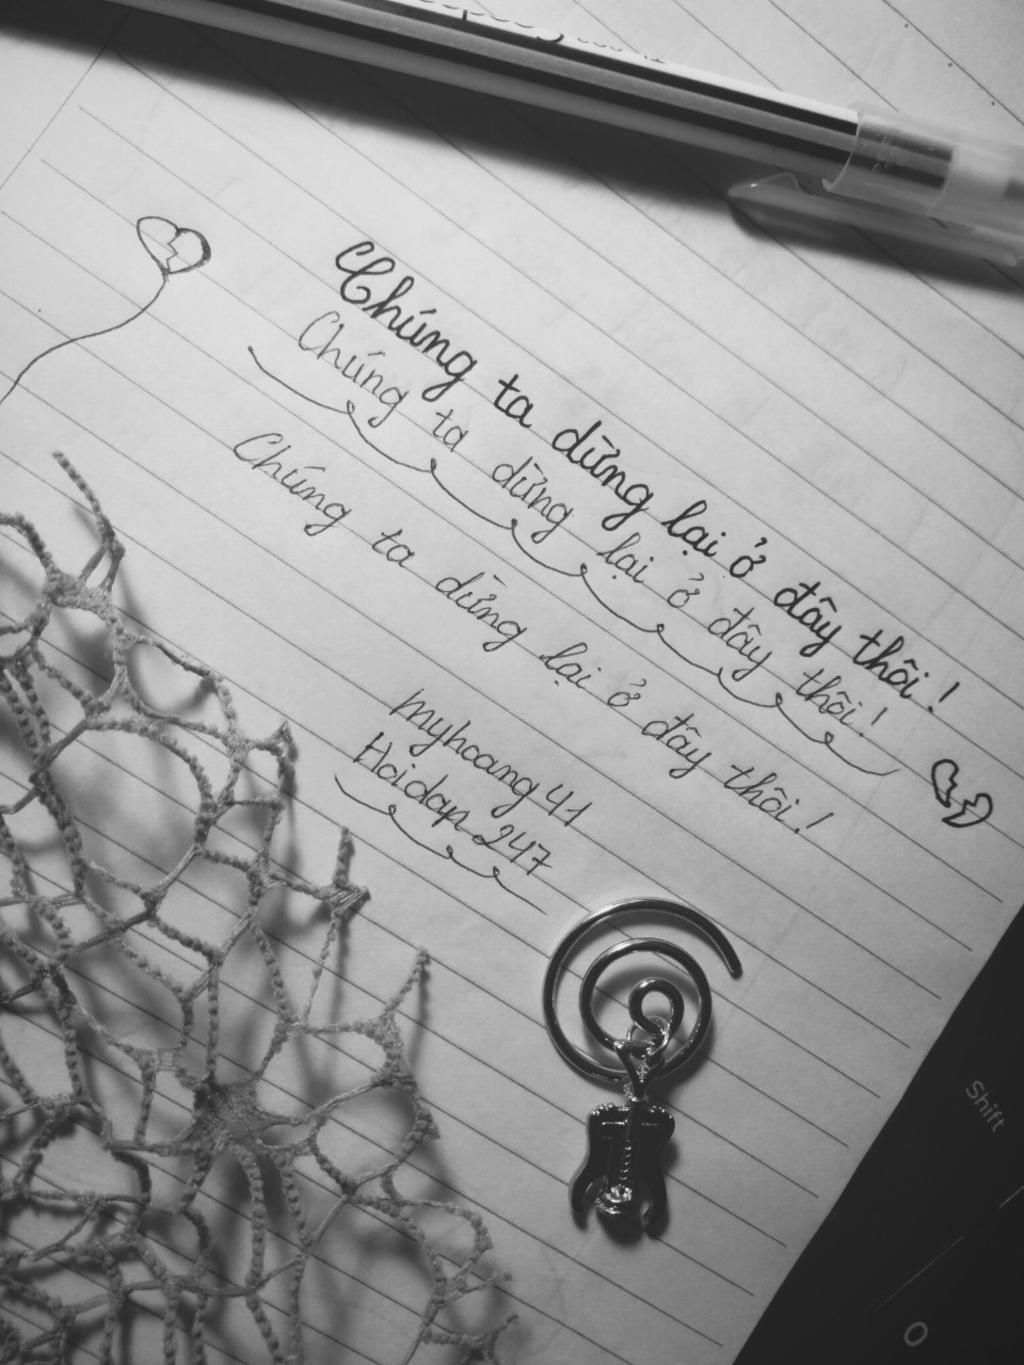 Chúng ta dừng lại ở đây thôi!
Chúng ta dừng lại ở đây thôi!
Chúng ta dừng lại ở đây thôi!
myhoang41
Hoidap247
Shift